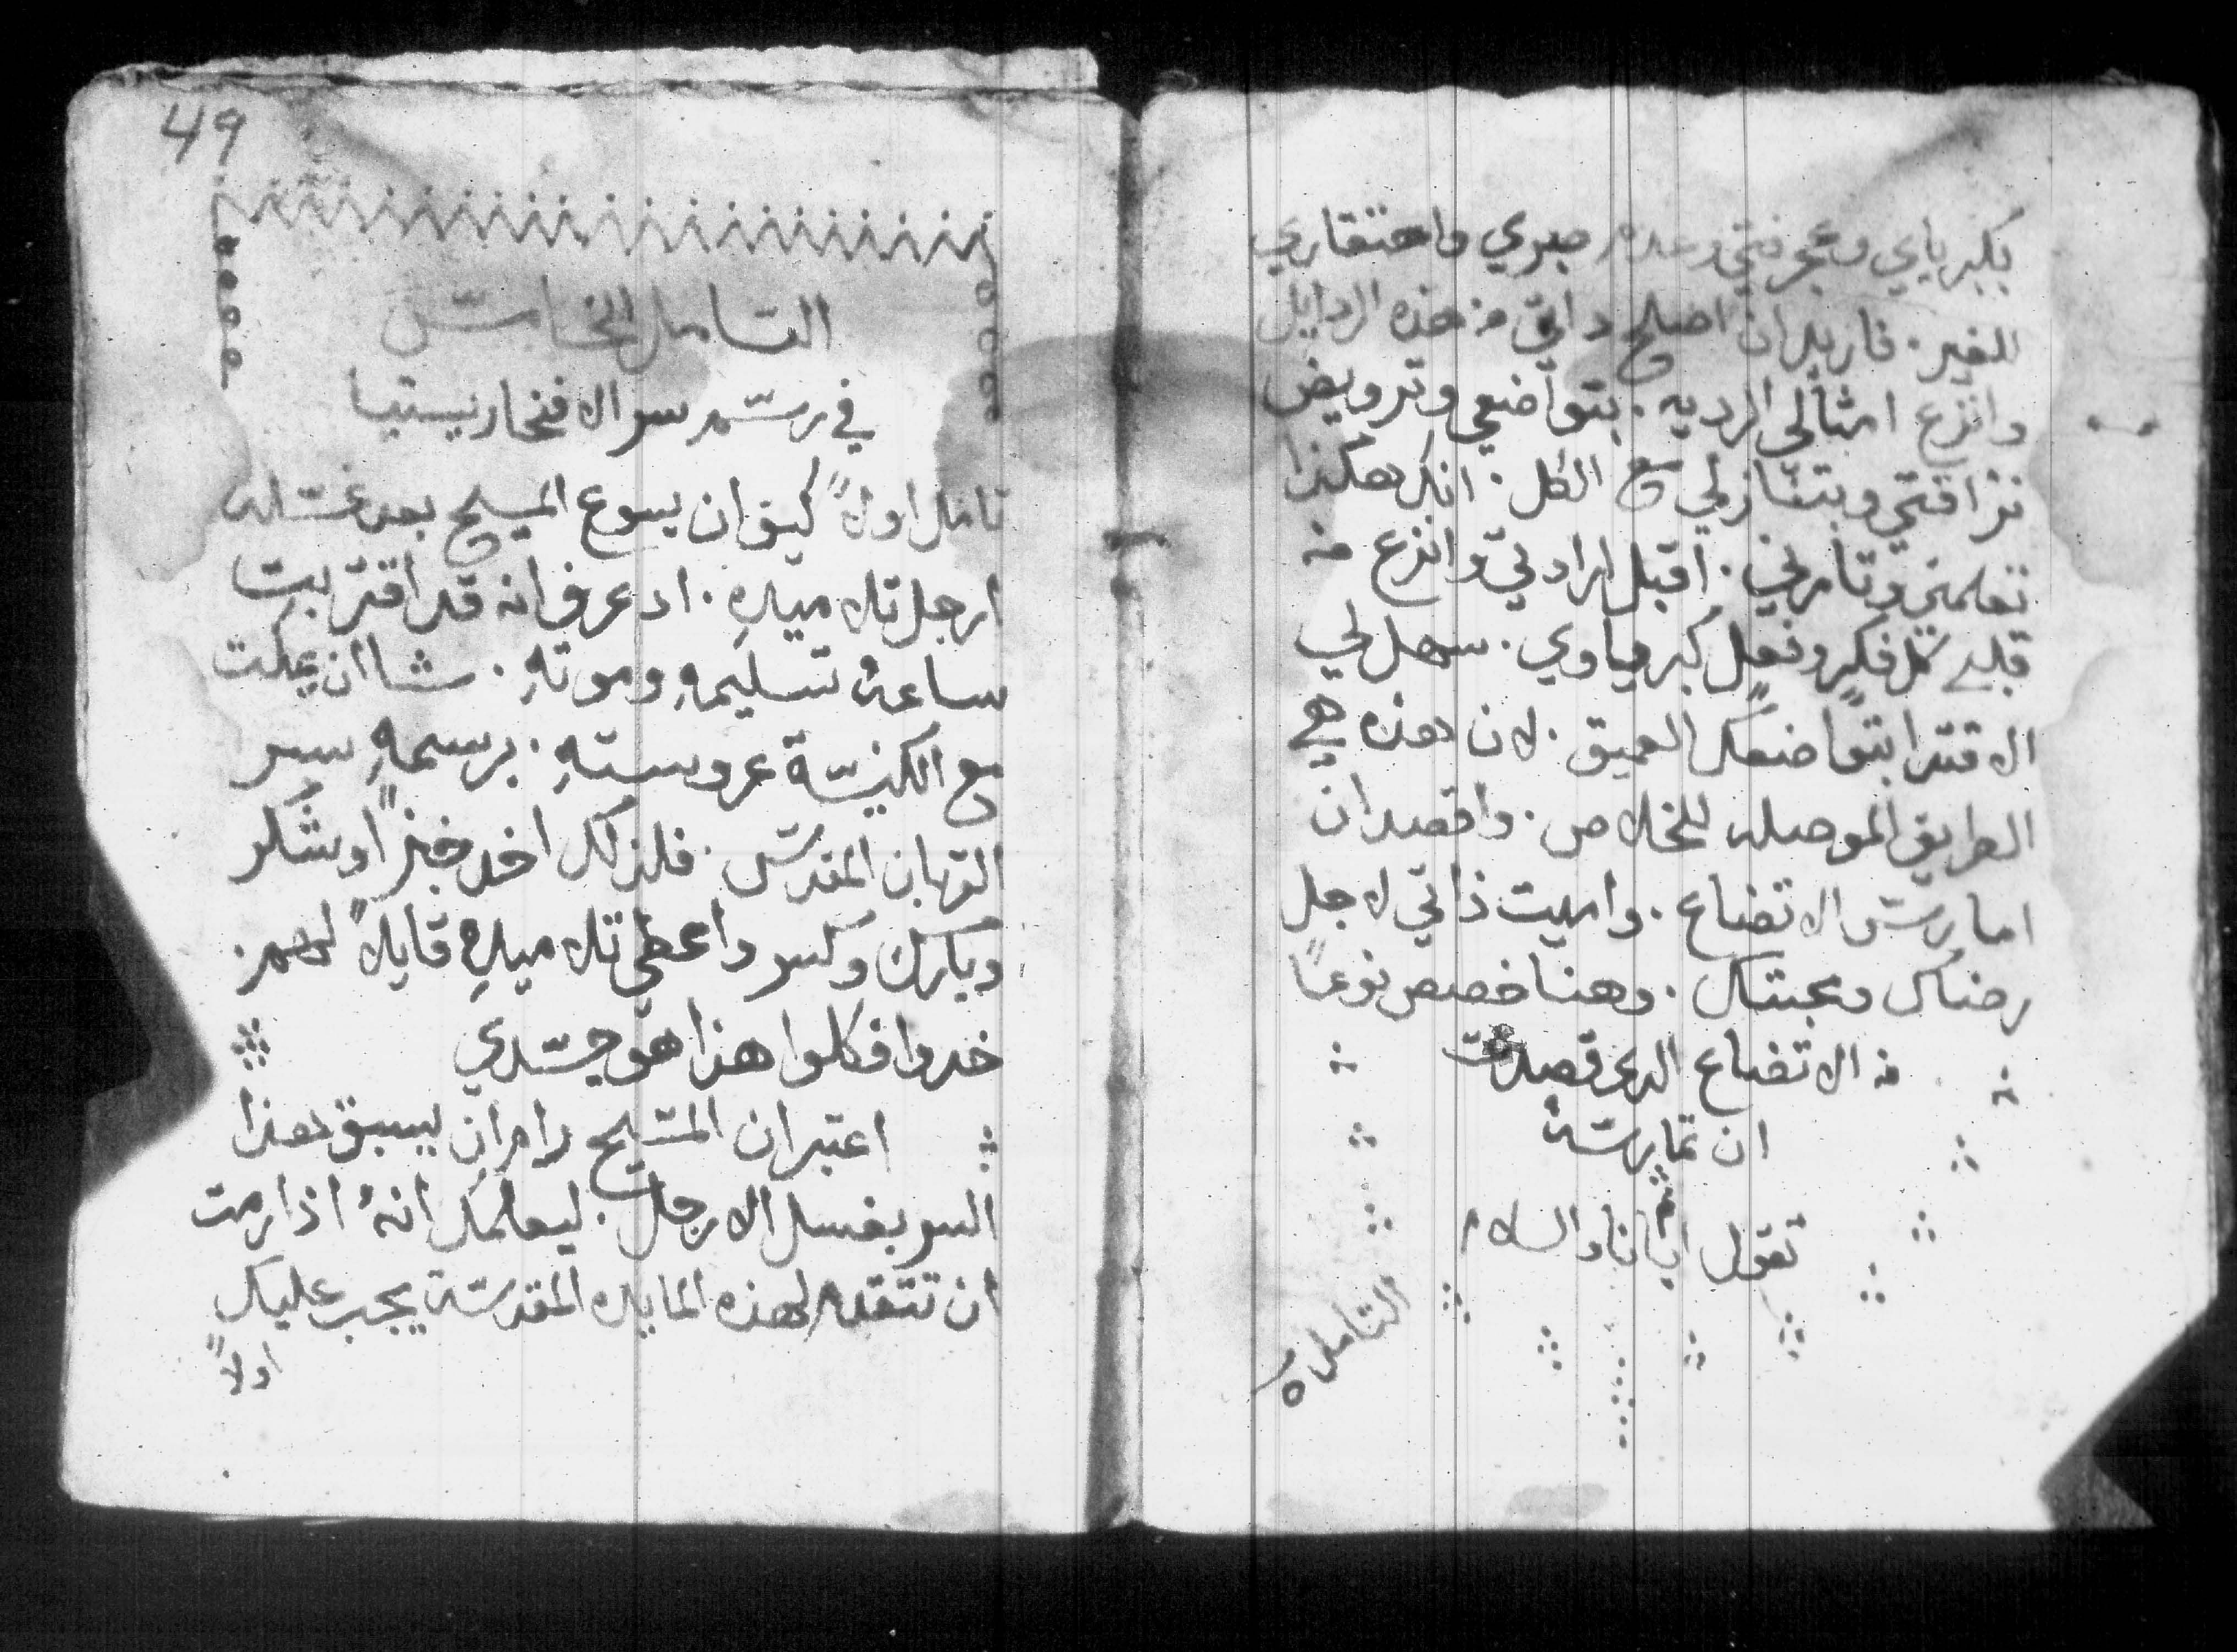 بكبرياي وعجرفتي وعدم صبري واحتقاري
للغير. فاريد ان اصلح داتي من هذه الردايل
وانزع امثالي الرديه. بتواضعي وترويض
نزاقتي وبتنازلي مع الكل. انك هكذا
تعلمني وتامرني. اقبل ارادتي وانزع من
قلبي كل فكر وفعل كبرياوي. سهل لي
الاقتدا بتواضعك العميق. لان هذه هي
الطريق الموصله للخلاص. واقصد ان
امارس الاتضاع. واميت ذاتي لاجل
رضاك ومحبتك. وهنا خصص نوعاً
من الاتضاع الدي قصدت
ان تمارسه
تقول ابانا والسلام
التامل ٥
49
التامل الخامس
في رسم سر الافخاريستيا
تامل اولاً كيف ان يسوع المسيح بعد غسله
ارجل تلاميده. اد عرف انه قد اقتربت
ساعة تسليمهِ وموتهِ. شا ان يمكت
مع الكنيسة عروستهِ. برسمهِ سر
القربان المقدس. فلذلك اخد خبزاً وشكر
وبارك وكسر واعطى تلاميدهِ قايلاً لهم.
خدوا فكلوا هذا هو جسدي
اعتبر ان المسيح رام ان يسبق هذا
السر بغسل الارجل. ليعلمك انهُ اذا رمت
ان تتقدم لهذه المايده المقدسة يجب عليك
اولاً